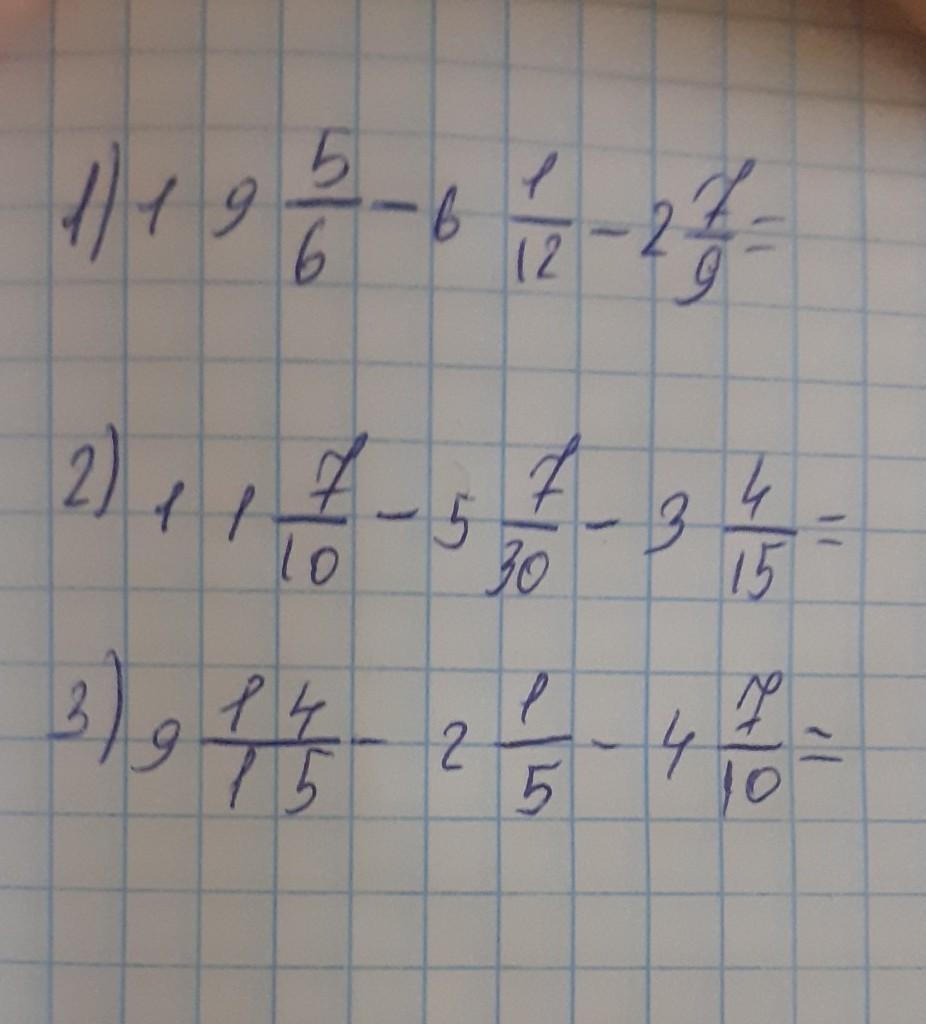 1) 19 5/6 - 6 1/12 - 2 7/9 =
2) 11 7/10 - 5 7/30 - 3 4/15 =
3) 9 14/15 - 2 1/5 - 4 7/10 =